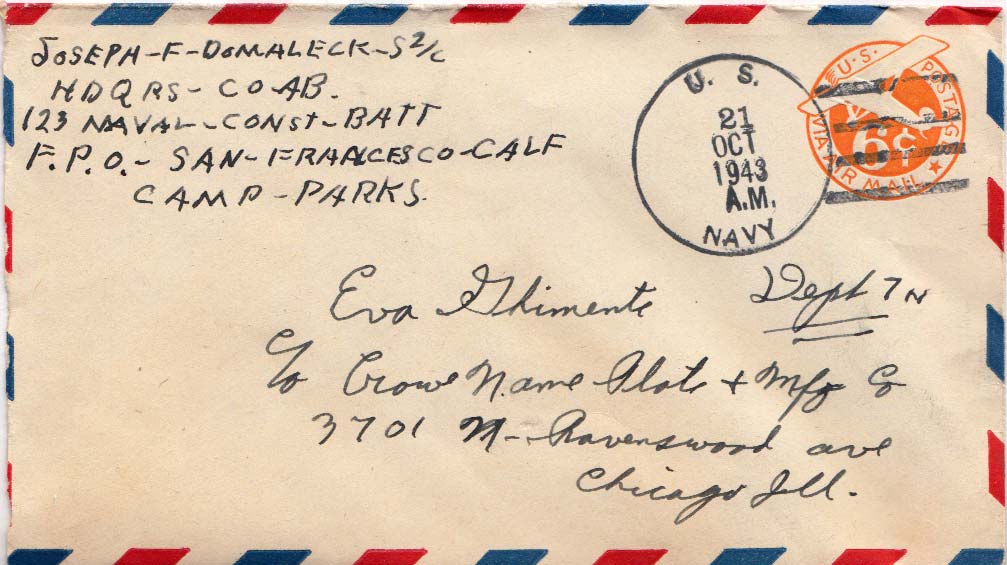 JOSEPH-F-DOMALECK-S2/C
HDQRS-CO-AB.
123 NAVAL-CONST-BATT
F.P.O.- SAN-FRANCESCO-CALF
CAMP-PARKS.
U. S.
21
OCT
1943
A.M.
NAVY
U.S. POSTAGE
6¢
VIA AIR MAIL
Eva Dept 7N
c/o Crowe Name Plate & Mfg Co
3701 N- Ravenswood ave
Chicago Ill.